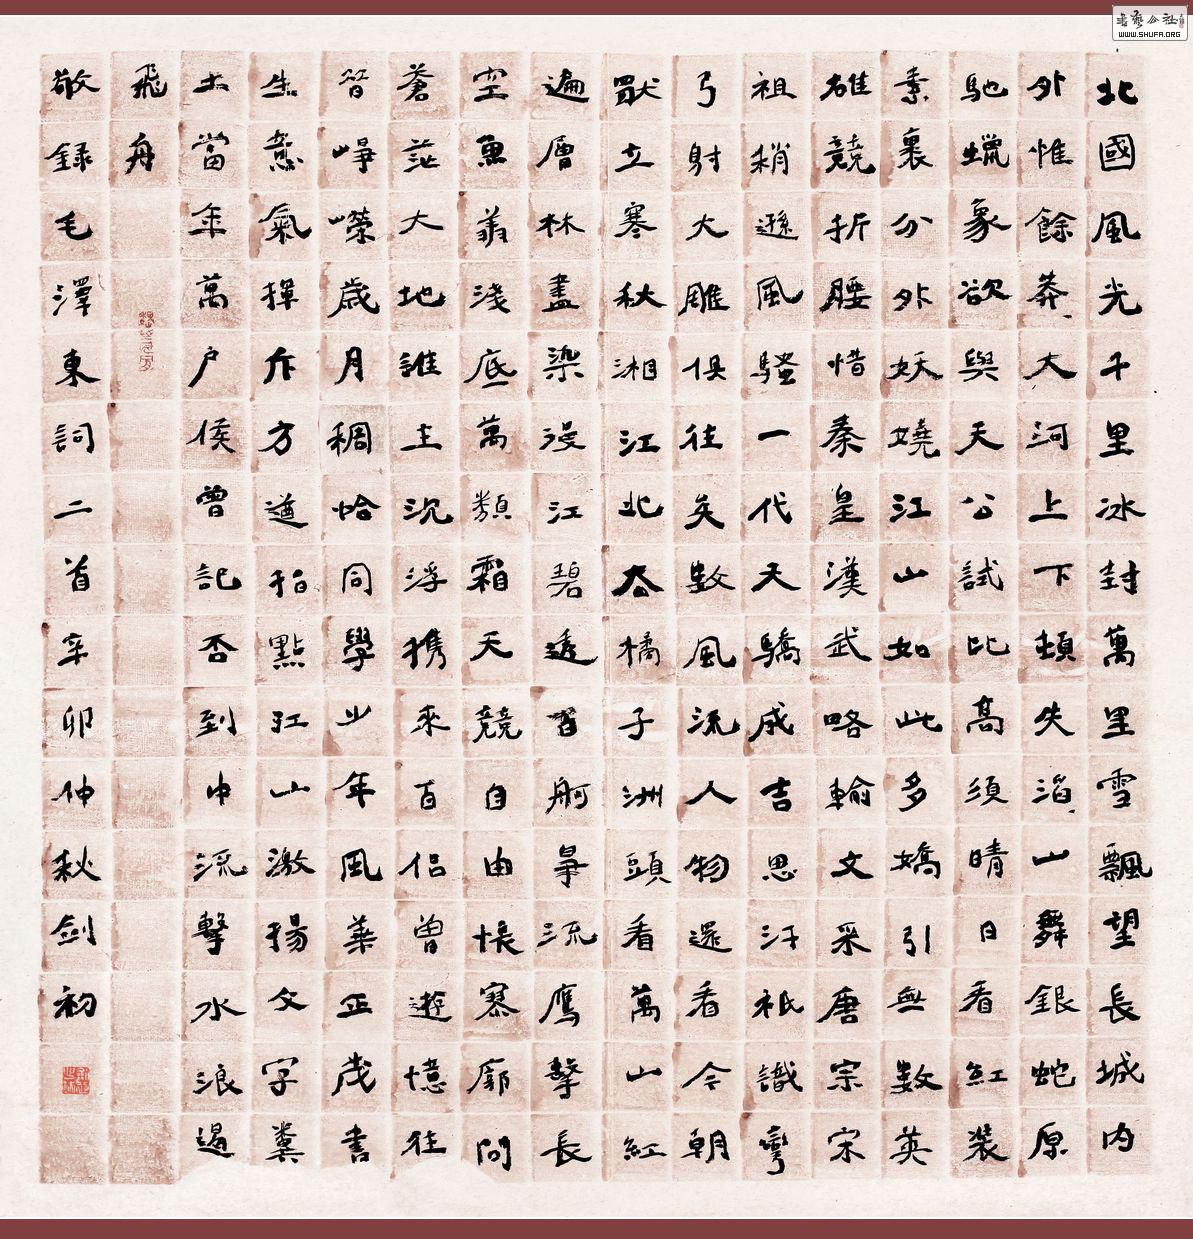 北國風光千里冰封萬里雪飄望長城内
外惟餘莽大河上下頓失滔山舞銀蛇原
馳蠟象欲與天公試比高須晴日看紅裝
素裹分外妖嬈江山如此多嬌引無數英
雄競折腰惜秦皇漢武略輸文采唐宗宋
祖稍遜風騷一代天驕成吉思汗祇識彎
弓射大雕俱往矣數風流人物還看今朝
獨立寒秋湘江北去橘子洲頭看萬山紅
遍層林盡染漫江碧透百舸爭流鷹擊長
空魚翔淺底萬類霜天競自由悵寥廓問
蒼茫大地誰主沉浮携來百侶曾遊憶往
昔崢嶸歲月稠恰同學少年風華正茂書
生意氣揮斥方遒指點江山激揚文字糞
土當年萬户侯曾記否到中流擊水浪遏
飛舟
敬録毛澤東詞二首辛卯仲秋剑初
WWW.SHUFA.ORG